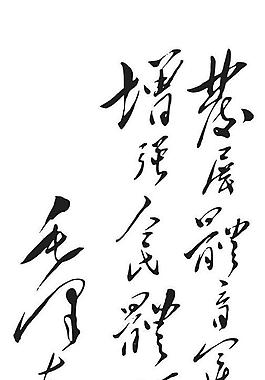 發展體育
增强人民體
毛澤